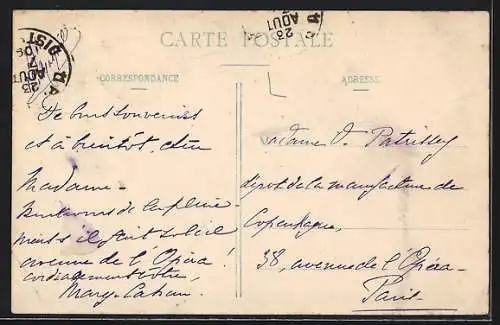 CARTE POSTALE
CORRESPONDANCE
ADRESSE
DIST
23
AOUT
De bons souvenirs
et à bientôt, chère
Madame -
de la pluie
mais il fait soleil
avenue de l'Opéra!
cordialement vôtre,
Marg. Cahen.
Madame V. Patrissey
dépot de la manufacture de
Copenhague,
38, avenue de l'Opéra -
Paris